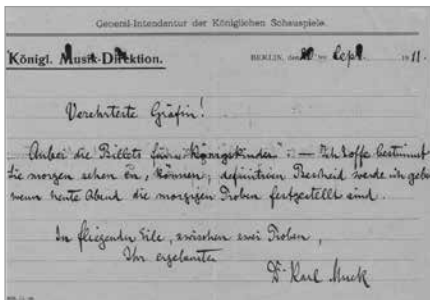 General-Intendantur der Königlichen Schauspiele.
Königl. Musik-Direktion.
BERLIN, den 20 ten Sept. 1911.
Verehrteste Gräfin!
Anbei die Billets für „Königskinder“. — Ich hoffe bestimmt
Sie morgen sehen zu können; definitiven Bescheid werde ich geben
wenn heute Abend die morgigen Proben festgestellt sind.
In fliegender Eile, zwischen zwei Proben,
Ihr ergebenster
Dr Karl Muck